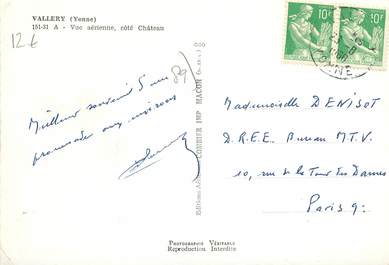 VALLERY (Yonne)
151-31 A - Vue aérienne, côté Château
12 €
89
Meilleur souvenir d'une
promenade aux environs
Editions
COMBIER IMP MACON
Mademoiselle DENISOT
D.R.E.E. Bureau M.T.V.
10, rue de la Tour des Dames
Paris 9e
10F
10F
YONNE
PHOTOGRAPHIE VÉRITABLE
Reproduction Interdite